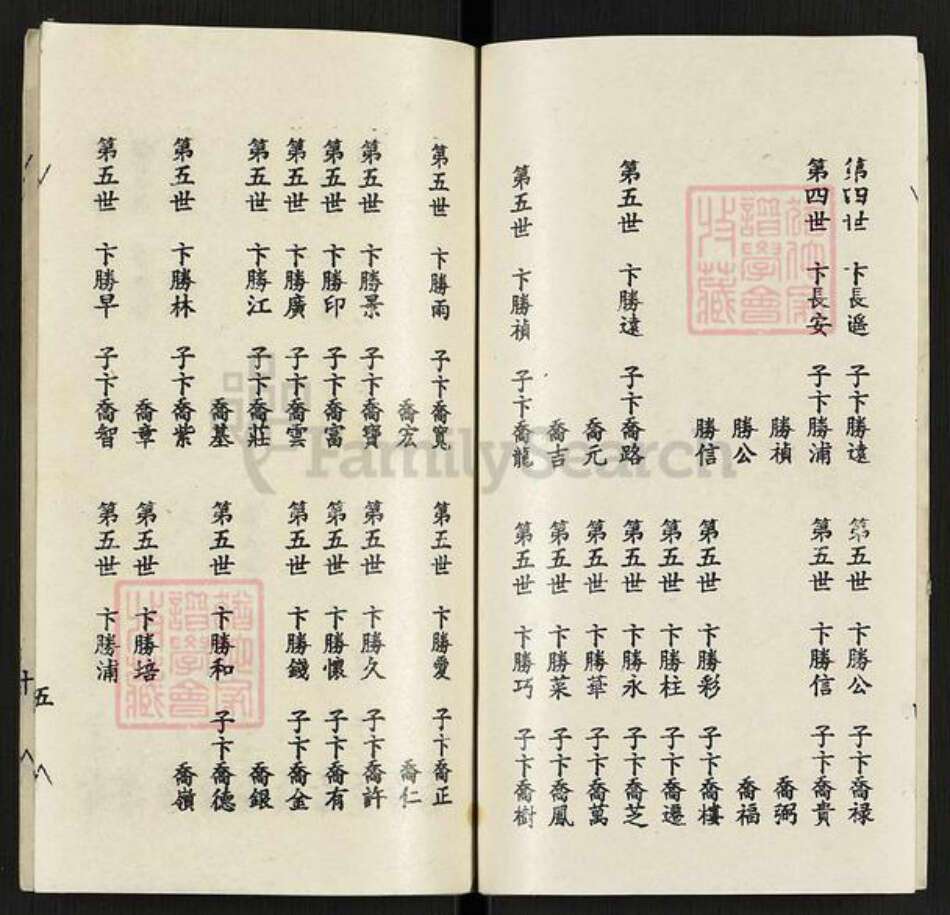 第四世 卞長遥 子卞勝遠
第四世 卞長安 子卞勝浦
勝禎
勝公
勝信
第五世 卞勝遠 子卞喬路
喬元
喬吉
第五世 卞勝禎 子卞喬龍
第五世 卞勝公 子卞喬禄
第五世 卞勝信 子卞喬貴
喬弼
喬福
第五世 卞勝彩 子卞喬樓
第五世 卞勝柱 子卞喬遷
第五世 卞勝永 子卞喬芝
第五世 卞勝華 子卞喬萬
第五世 卞勝菜 子卞喬鳳
第五世 卞勝巧 子卞喬樹
第五世 卞勝雨 子卞喬寬
喬宏
第五世 卞勝景 子卞喬寶
第五世 卞勝印 子卞喬富
第五世 卞勝廣 子卞喬雲
第五世 卞勝江 子卞喬莊
喬基
第五世 卞勝林 子卞喬紫
喬章
第五世 卞勝早 子卞喬智
第五世 卞勝愛 子卞喬正
喬仁
第五世 卞勝久 子卞喬許
第五世 卞勝懷 子卞喬有
第五世 卞勝錢 子卞喬金
喬銀
第五世 卞勝和 子卞喬德
喬嶺
第五世 卞勝培
第五世 卞勝浦
十五
FamilySearch
譜學會
收藏
譜學會
收藏